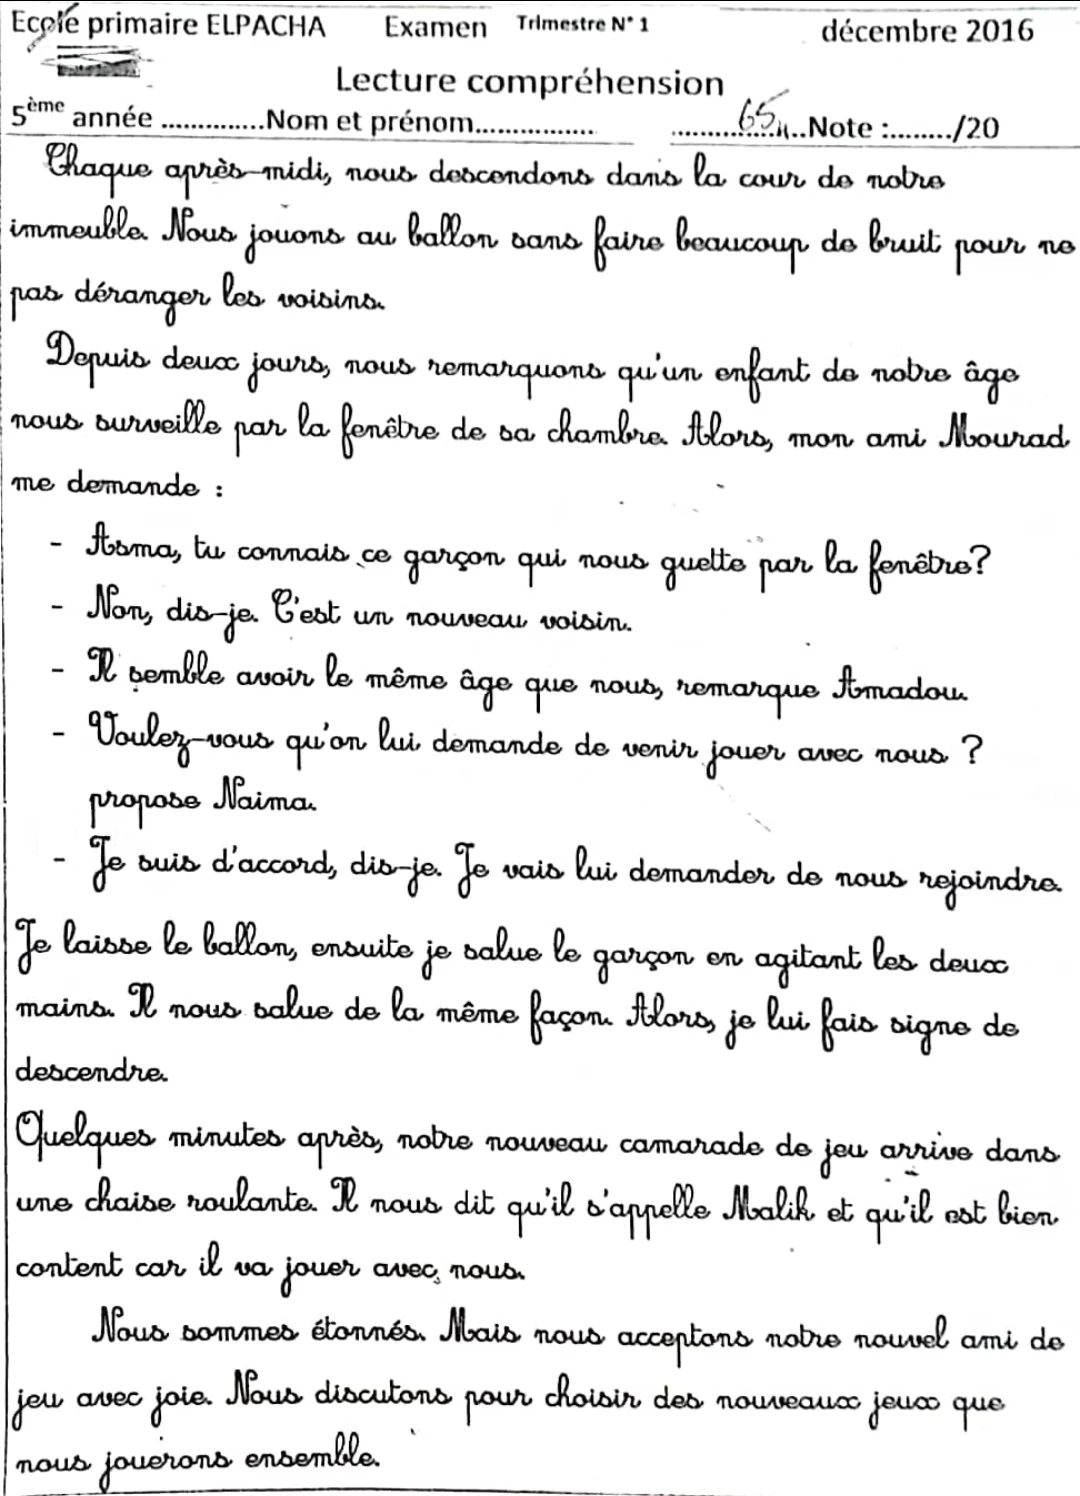 Ecole primaire ELPACHA Examen Trimestre N° 1 décembre 2016
Lecture compréhension
5ème année ..............Nom et prénom................. ............65...Note :......../20
Chaque après-midi, nous descendons dans la cour de notre
immeuble. Nous jouons au ballon sans faire beaucoup de bruit pour ne
pas déranger les voisins.
Depuis deux jours, nous remarquons qu'un enfant de notre âge
nous surveille par la fenêtre de sa chambre. Alors, mon ami Mourad
me demande :
- Asma, tu connais ce garçon qui nous guette par la fenêtre?
- Non, dis-je. C'est un nouveau voisin.
- Il semble avoir le même âge que nous, remarque Amadou.
- Voulez-vous qu'on lui demande de venir jouer avec nous ?
propose Naima.
- Je suis d'accord, dis-je. Je vais lui demander de nous rejoindre.
Je laisse le ballon, ensuite je salue le garçon en agitant les deux
mains. Il nous salue de la même façon. Alors, je lui fais signe de
descendre.
Quelques minutes après, notre nouveau camarade de jeu arrive dans
une chaise roulante. Il nous dit qu'il s'appelle Malik et qu'il est bien
content car il va jouer avec nous.
Nous sommes étonnés. Mais nous acceptons notre nouvel ami de
jeu avec joie. Nous discutons pour choisir des nouveaux jeux que
nous jouerons ensemble.